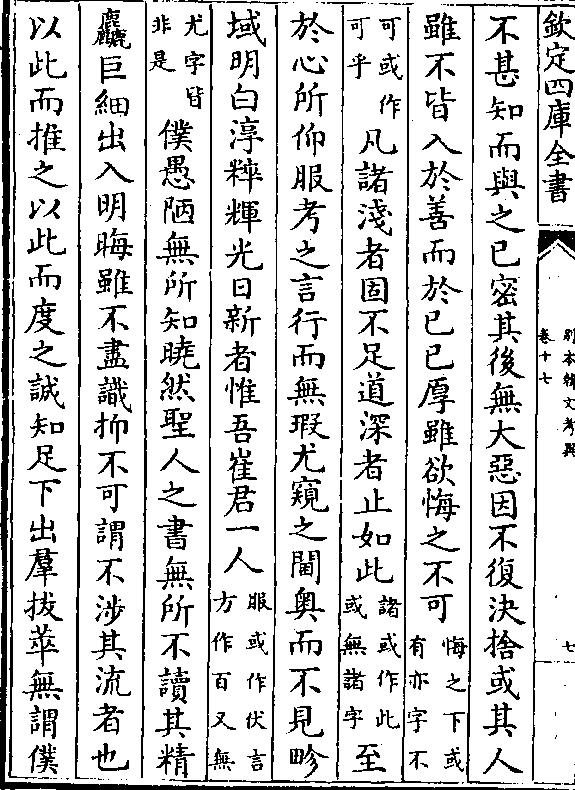 欽定四庫全書
別本韓文考異
卷十七
七
不甚知而與之已密其後無大惡因不復決捨或其人
雖不皆入於善而於已已厚雖欲悔之不可悔之下或有亦字不
可或作可乎凡諸淺者固不足道深者止如此諸或作此或無諸字至
於心所仰服考之言行而無瑕尤窺之閫奧而不見畛
域明白淳粹輝光日新者惟吾崔君一人服或作伏言方作百又無
尤字皆非是僕愚陋無所知曉然聖人之書無所不讀其精
麤巨細出入明晦雖不盡識抑不可謂不涉其流者也
以此而推之以此而度之誠知足下出羣拔萃無謂僕